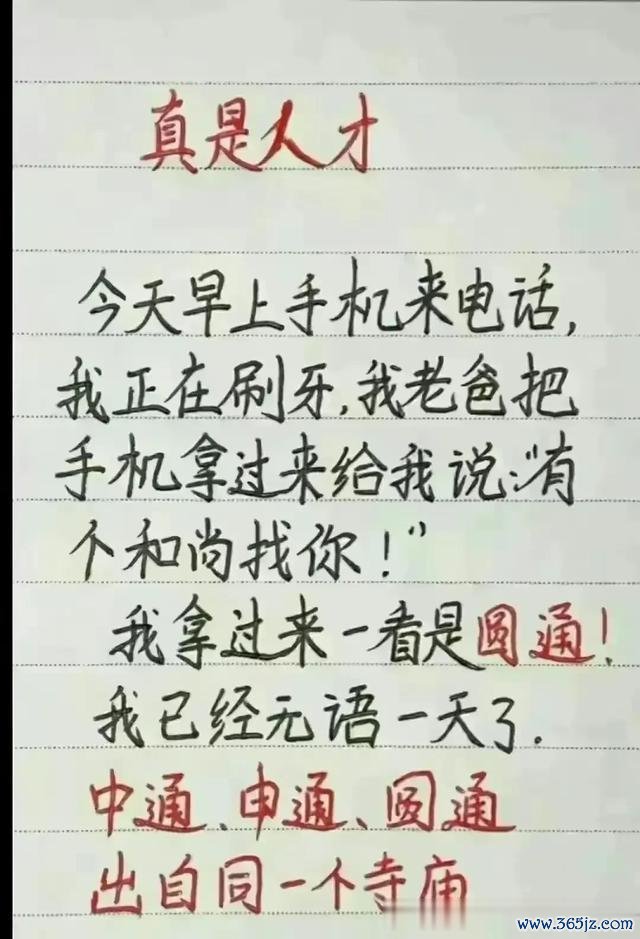 真是人才
今天早上手机来电话,
我正在刷牙,我老爸把
手机拿过来给我说:“有
个和尚找你!”
我拿过来一看是圆通!
我已经无语一天了.
中通、申通、圆通
出自同一个寺庙
www.365jz.com